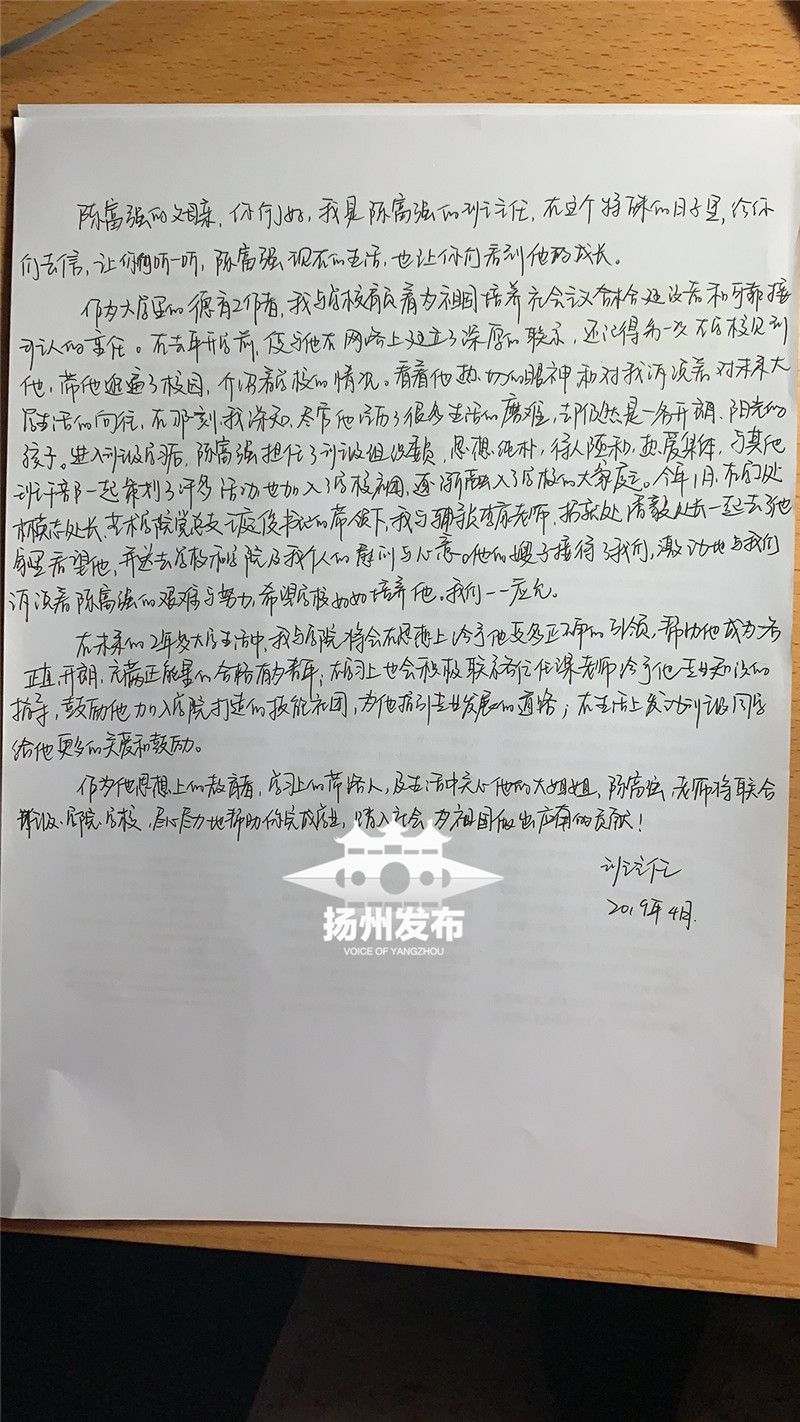 陈富强的父母亲，你们好，我是陈富强的班主任，在这个特殊的日子里，给你
们去信，让你们听一听，陈富强现在的生活，也让你们看到他的成长。
作为大学里的德育工作者，我与学校肩负着为祖国培养社会主义合格建设者和可靠接
班人的重任。在去年开学前，便与他在网络上建立了深厚的联系，还记得第一次在学校见到
他，带他逛遍了校园，介绍着学校的情况。看着他热切的眼神和对我诉说着对未来大
学生活的向往，在那刻，我深知，尽管他经历了很多生活的磨难，却仍然是一名开朗、阳光的
孩子。进入班级学习后，陈富强担任了班级组织委员，思想纯朴，待人随和，热爱集体，与其他
班干部一起策划了许多活动也加入了学校社团，逐渐融入了学校的大家庭。今年1月，在
处长、艺术学院党总支书记的带领下，我与辅导员老师、处长一起去了他
家里看望他，并送去学校和学院及我个人的慰问与心意。他的嫂子接待了我们，激动地与我们
诉说着陈富强的艰难与努力，希望学校好好培养他。我们一一应允。
在未来的2年多大学生活中，我与学院将会在思想上给予他更多正确的引领，帮助他成为一名
正直、开朗、充满正能量的合格有为青年；在学习上也会积极联系各位任课老师给予他专业知识的
指导，鼓励他加入学院打造的技能社团，为他指引专业发展的道路；在生活上发动班级同学
给他更多的关爱和鼓励。
作为他思想上的教育者，学习上的带路人，及生活中关心他的大姐姐，陈富强，老师将联合
班级、学院、学校，尽心尽力地帮助你完成学业，踏入社会，为祖国做出应有的贡献！
班主任
2019年4月.
扬州发布
VOICE OF YANGZHOU